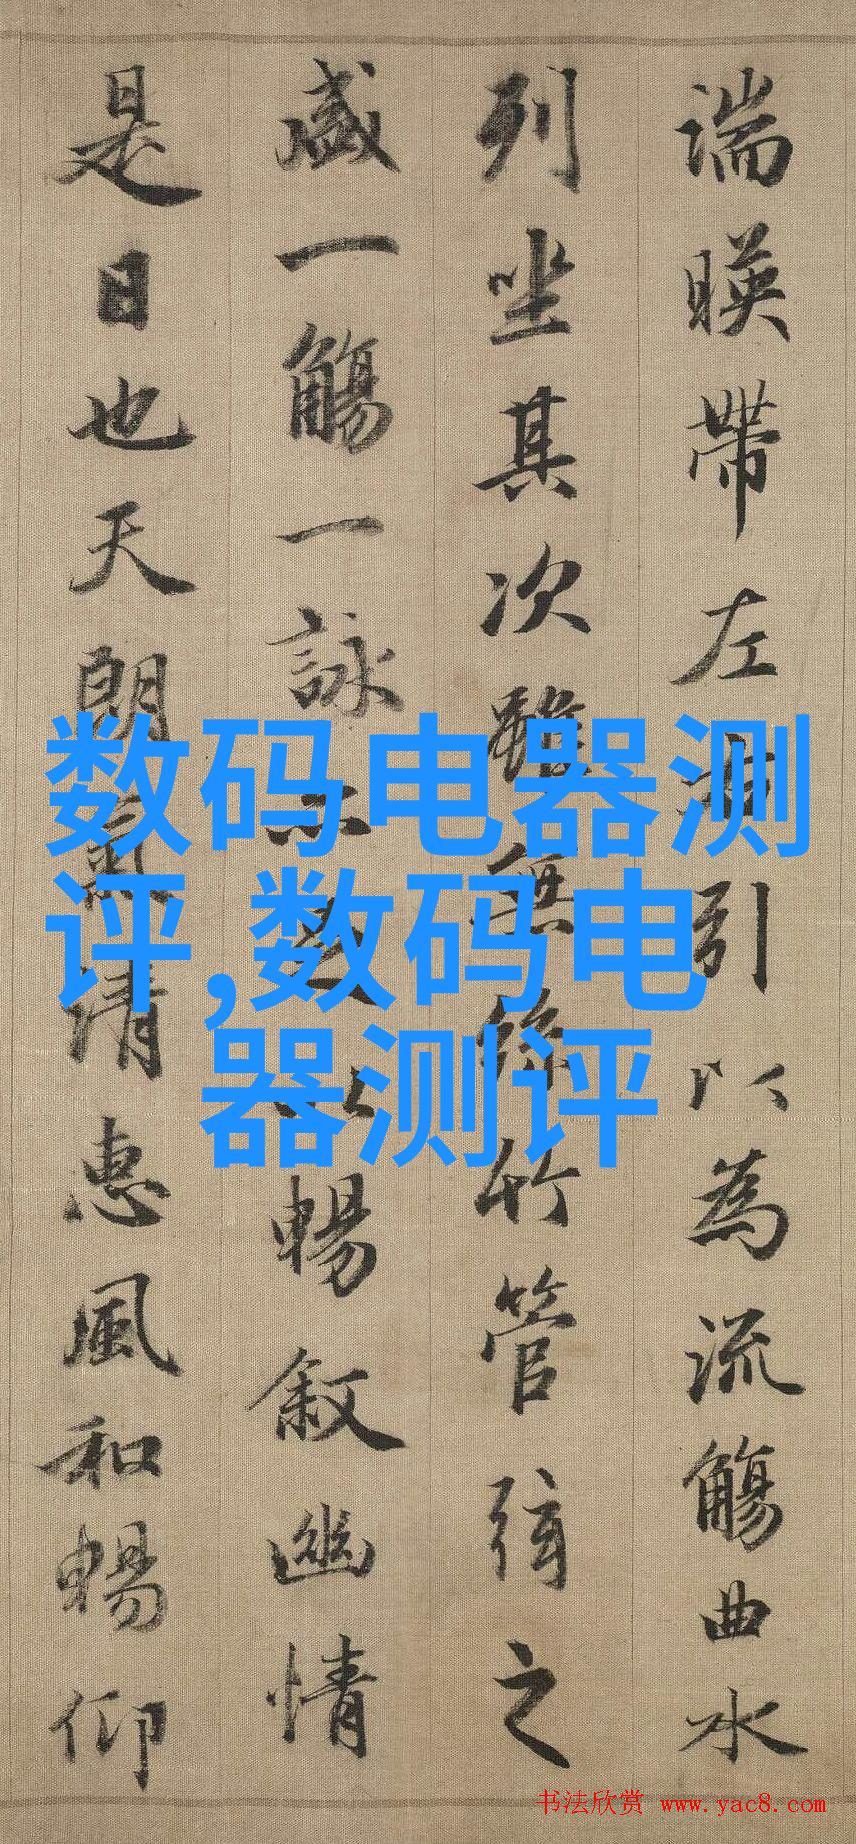 湍暎帶左右引以為流觴曲水
列坐其次雖無絲竹管弦之
盛一觴一詠亦足以暢叙幽情
是日也天朗氣清惠風和暢仰
数码电器测
评,数码电
器测评
书法欣赏 www.yac8.com